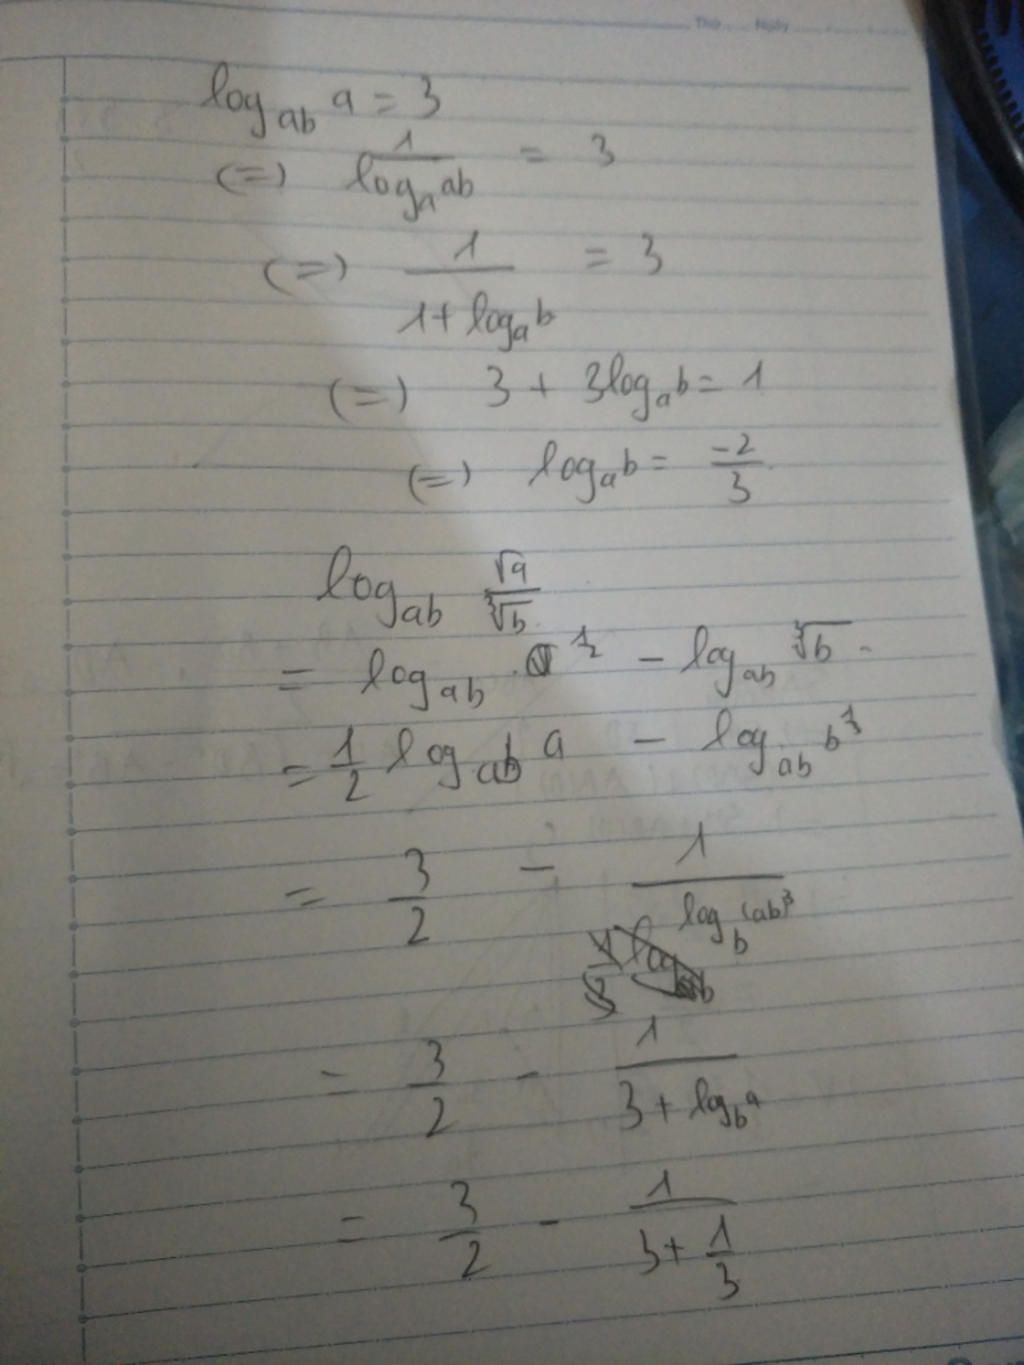 Thứ Ngày
log_{ab} a = 3
(=) \frac{1}{log_a ab} = 3
(=) \frac{1}{1 + log_a b} = 3
(=) 3 + 3log_a b = 1
(=) log_a b = \frac{-2}{3}
log_{ab} \frac{\sqrt{a}}{\sqrt[3]{b}}
= log_{ab} a^{\frac{1}{2}} - log_{ab} \sqrt[3]{b}
= \frac{1}{2} log_{ab} a - log_{ab} b^{\frac{1}{3}}
= \frac{3}{2} - \frac{1}{log_b (ab)^3}
= \frac{3}{2} - \frac{1}{3 + log_b a}
= \frac{3}{2} - \frac{1}{3 + \frac{1}{3}}